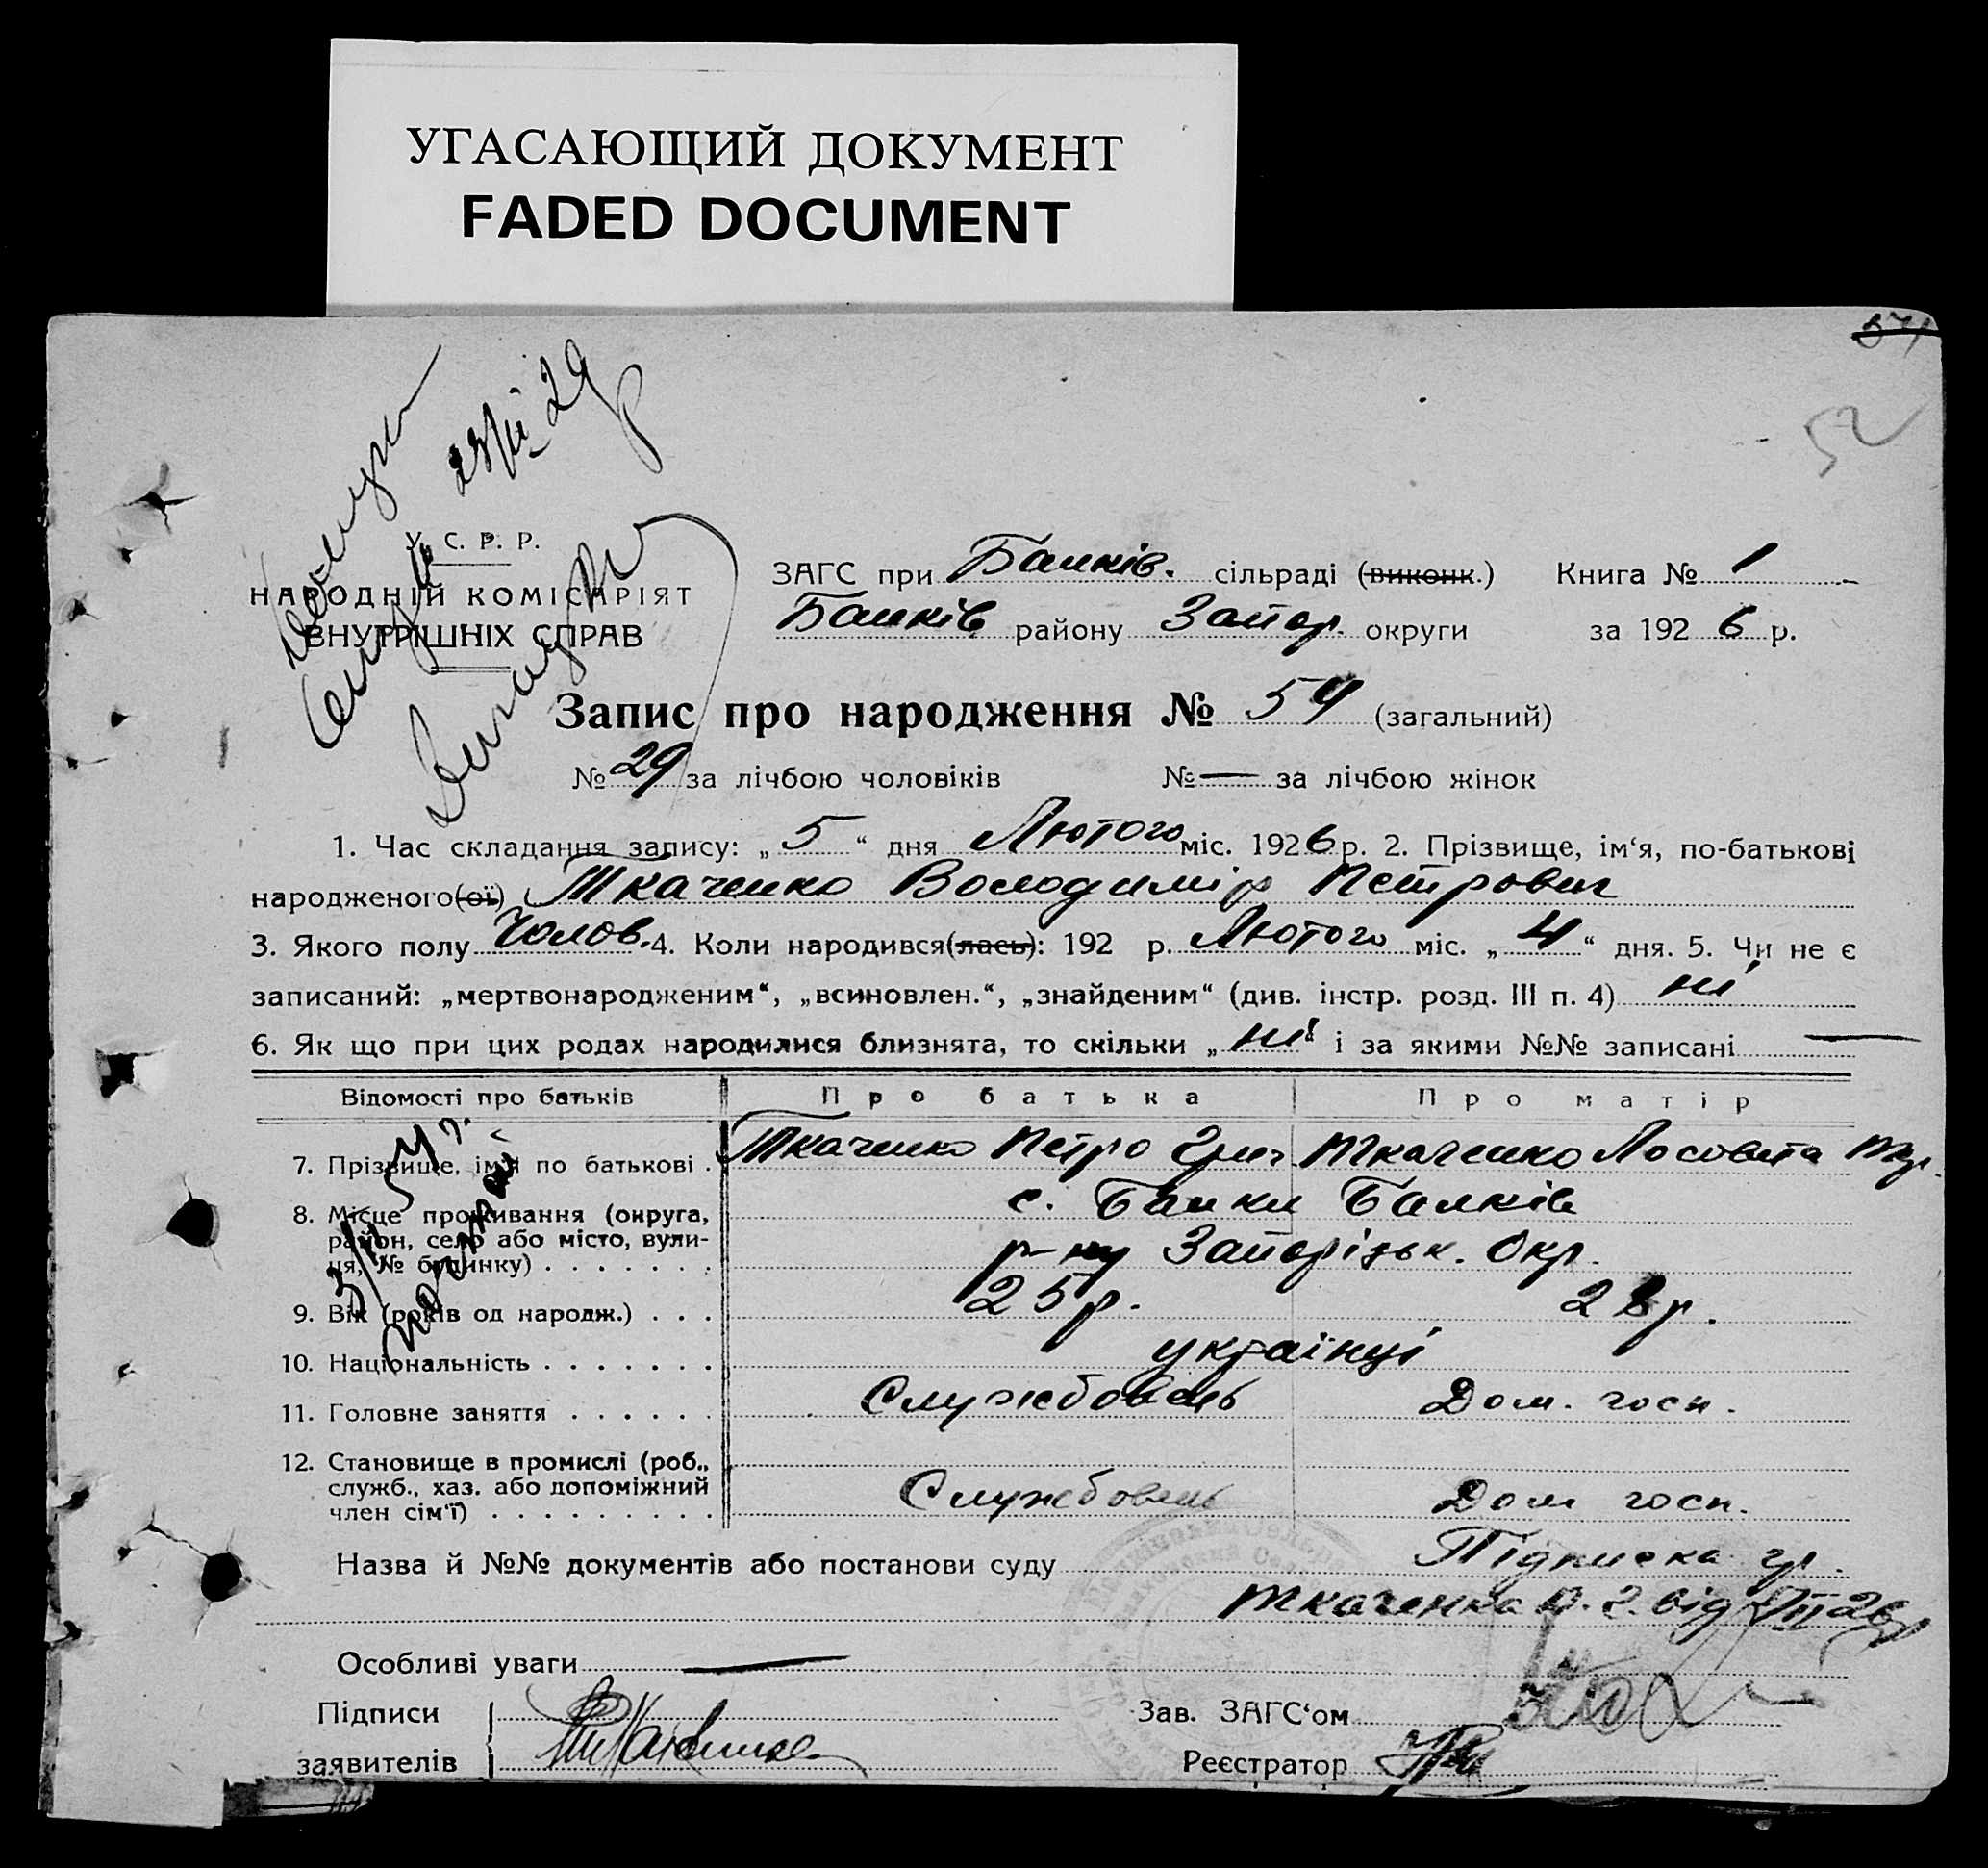 УГАСАЮЩИЙ ДОКУМЕНТ
FADED DOCUMENT
571
52
У. С. Р. Р.
НАРОДНІЙ КОМІСАРІЯТ
ВНУТРІШНІХ СПРАВ
ЗАГС при Балків. сільраді (виконк.) Книга № 1
Балків району Запор. округи за 1926 р.
Запис про народження № 54 (загальний)
№ 29 за лічбою чоловіків № — за лічбою жінок
1. Час складання запису: „5“ дня Лютого міс. 1926 р. 2. Прізвище, ім‘я, по-батькові
народженого(ої) Ткаченко Володимір Петрович
3. Якого полу Чолов. 4. Коли народився(лась): 192 р. Лютого міс. „4“ дня. 5. Чи не є
записаний: „мертвонародженим“, „всиновлен.“, „знайденим“ (див. інстр. розд. III п. 4) ні
6. Як що при цих родах народилися близнята, то скільки „ні“ і за якими №№ записані —
Відомості про батьків Про батька Про матір
7. Прізвище, ім‘я по батькові . Ткаченко Петро Григ Ткаченко
8. Місце проживання (округа, с. Балки Балків
район, село або місто, вули-
ця, № будинку) . . . . . . . р-ну Запорізьк. Окр.
9. Вік (років од народж.) . . . 25 р. 28 р.
10. Національність . . . . . . . українці
11. Головне заняття . . . . . . Службовець Дом. госп.
12. Становище в промислі (роб.,
служб., хаз. або допоміжний Службовець Дом госп.
член сім‘ї) . . . . . . . . .
Назва й №№ документів або постанови суду Підписка гр.
Ткаченка П. Г. від
Особливі уваги —
Підписи Зав. ЗАГС‘ом
заявителів Реєстратор